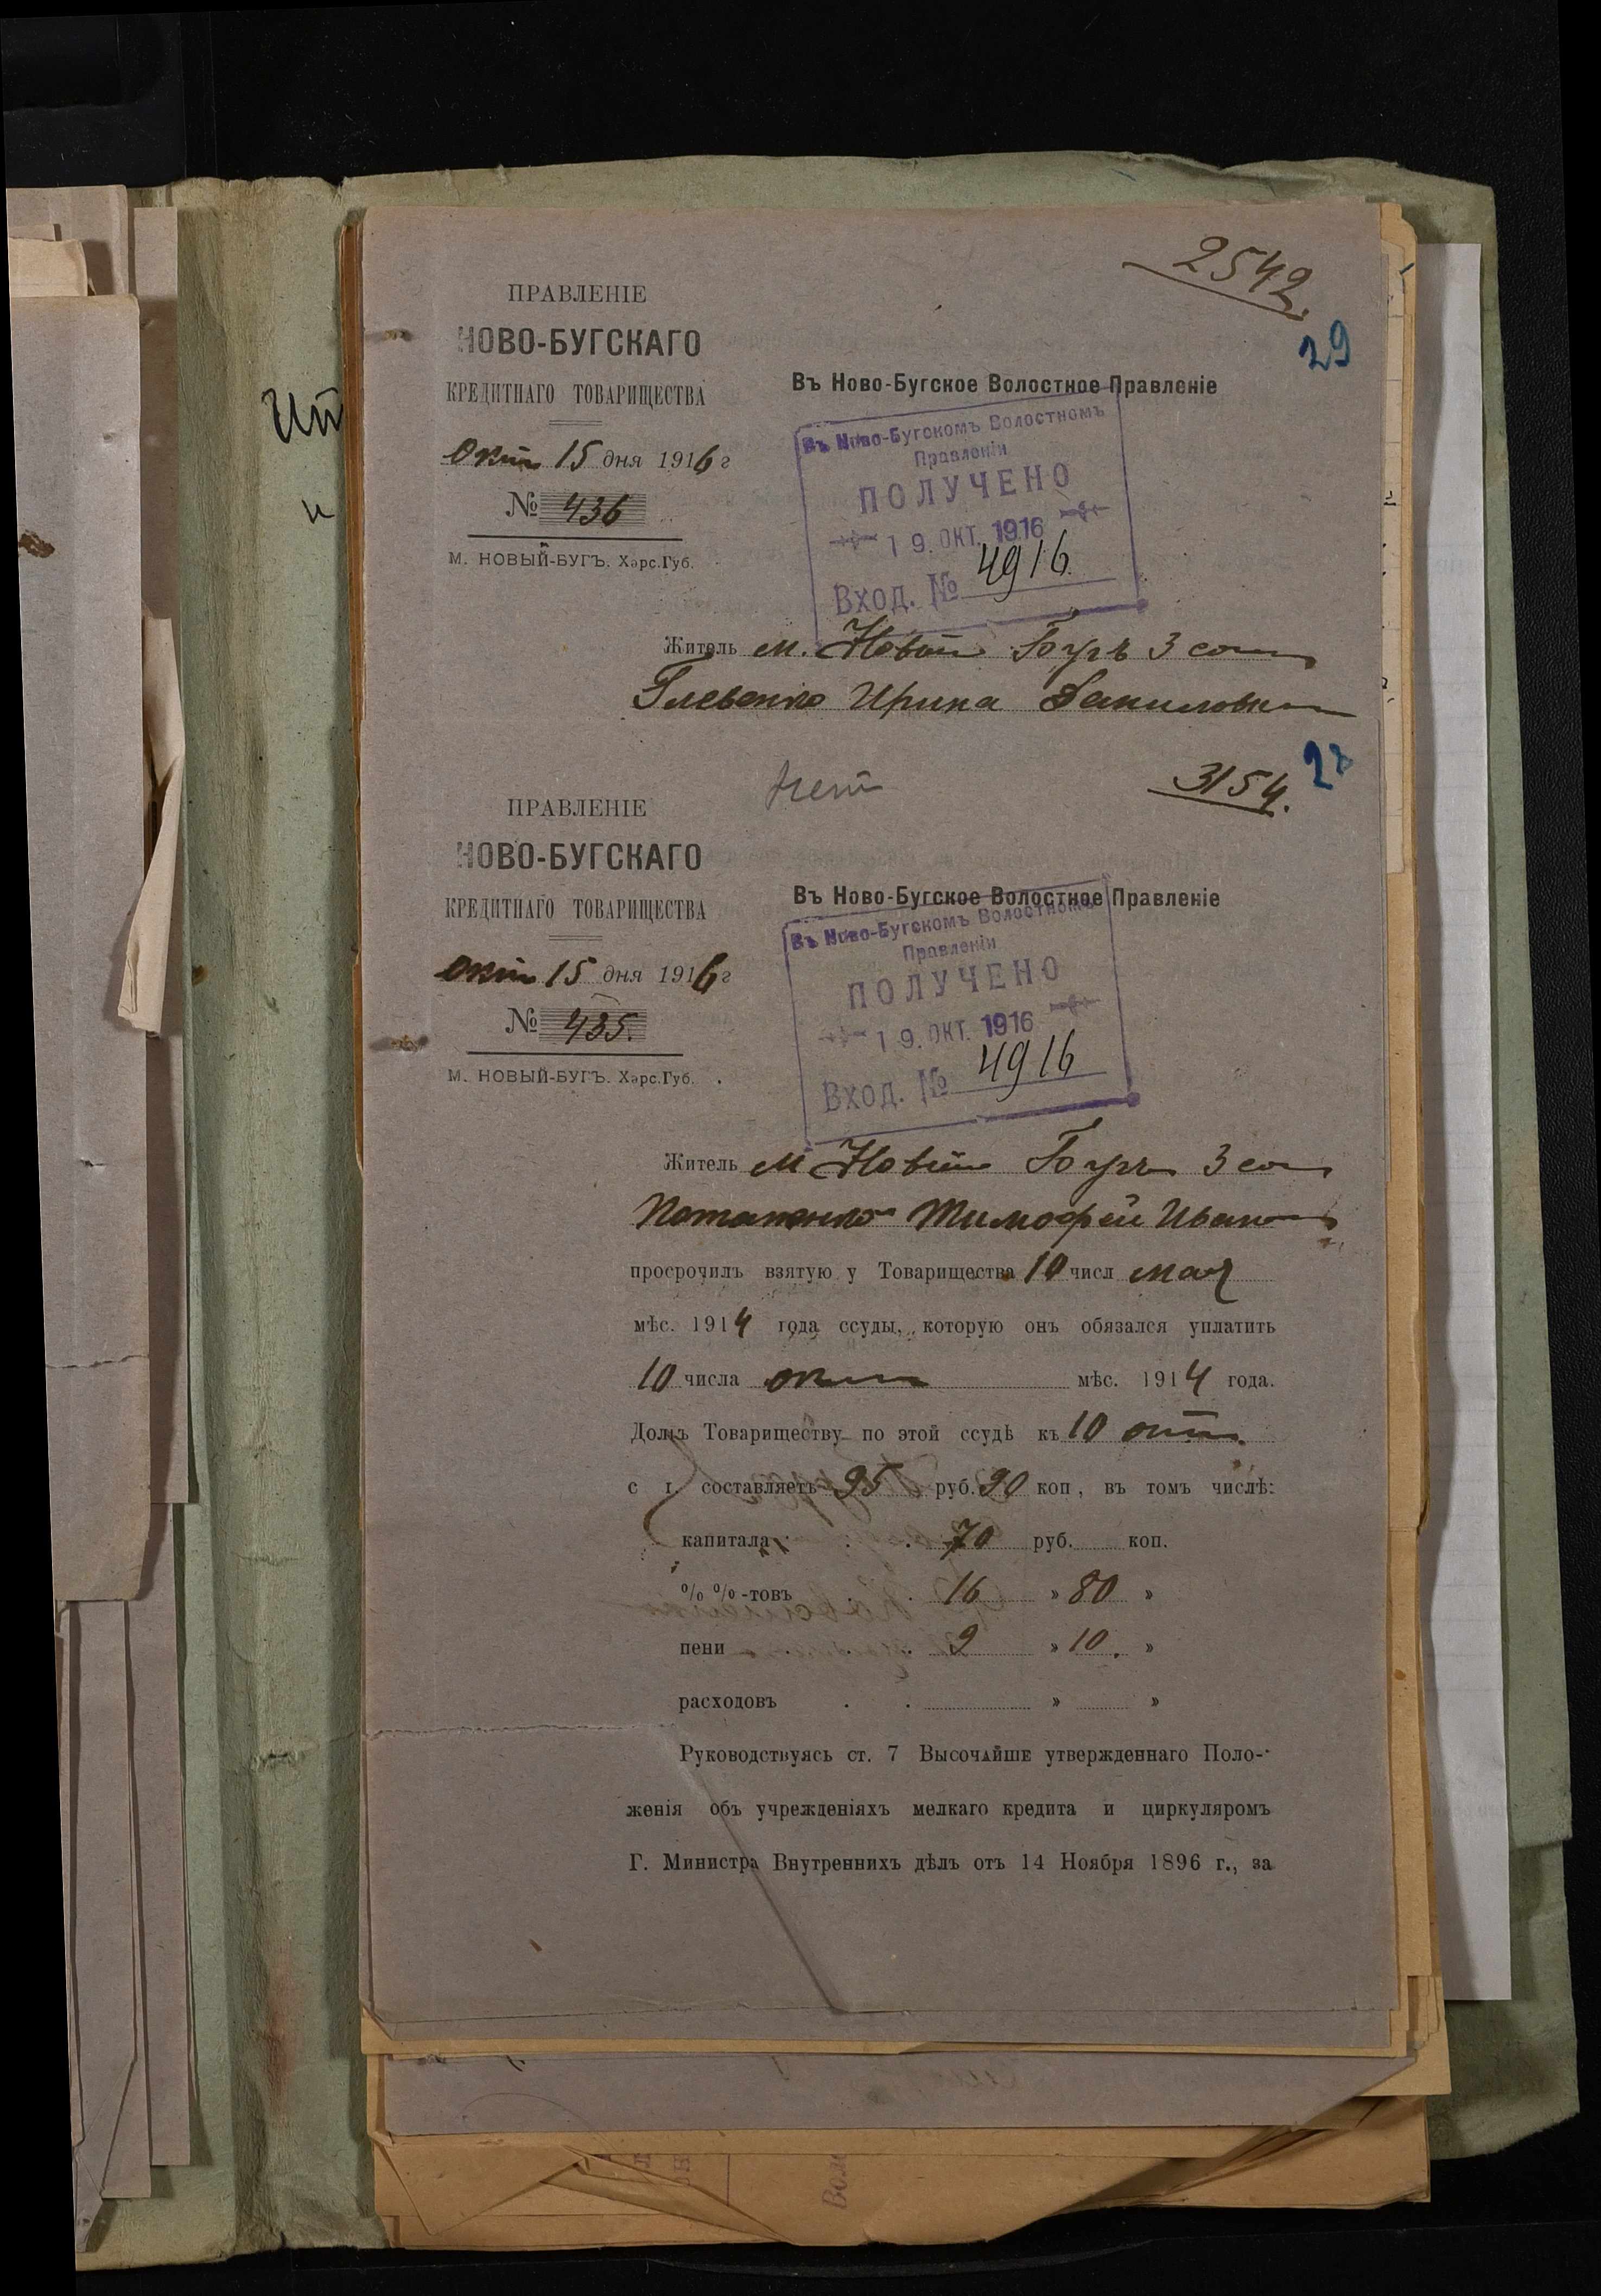 2542.
29
ПРАВЛЕНІЕ
НОВО-БУГСКАГО
КРЕДИТНАГО ТОВАРИЩЕСТВА
Окт 15 дня 1916 г
№ 436
М. НОВЫЙ-БУГЪ. Херс.Губ.
Въ Ново-Бугское Волостное Правленіе
Въ Ново-Бугскомъ Волостномъ
Правленіи
ПОЛУЧЕНО
19. ОКТ. 1916
Вход. № 4916
Житель м. Новый Бугъ 3 сот
Ирина Даниловна
3154.
ПРАВЛЕНІЕ
НОВО-БУГСКАГО
КРЕДИТНАГО ТОВАРИЩЕСТВА
Окт 15 дня 1916 г
№ 435.
М. НОВЫЙ-БУГЪ. Херс.Губ.
Въ Ново-Бугское Волостное Правленіе
Въ Ново-Бугскомъ Волостномъ
Правленіи
ПОЛУЧЕНО
19. ОКТ. 1916
Вход. № 4916
Житель м Новый Бугъ 3 сот
Потапенко Тимофей Иванов
просрочилъ взятую у Товарищества 10 числ мая
мѣс. 1914 года ссуды, которую онъ обязался уплатить
10 числа окт мѣс. 1914 года.
Долгъ Товариществу по этой ссудѣ къ 10 окт.
с г. составляетъ 95 руб. 90 коп, въ томъ числѣ:
капитала . . 70 руб. коп.
% %-товъ . . 16 » 80 »
пени . . . 9 » 10. »
расходовъ . . » »
Руководствуясь ст. 7 Высочайше утвержденнаго Поло-
женія объ учрежденіяхъ мелкаго кредита и циркуляромъ
Г. Министра Внутреннихъ дѣлъ отъ 14 Ноября 1896 г., за